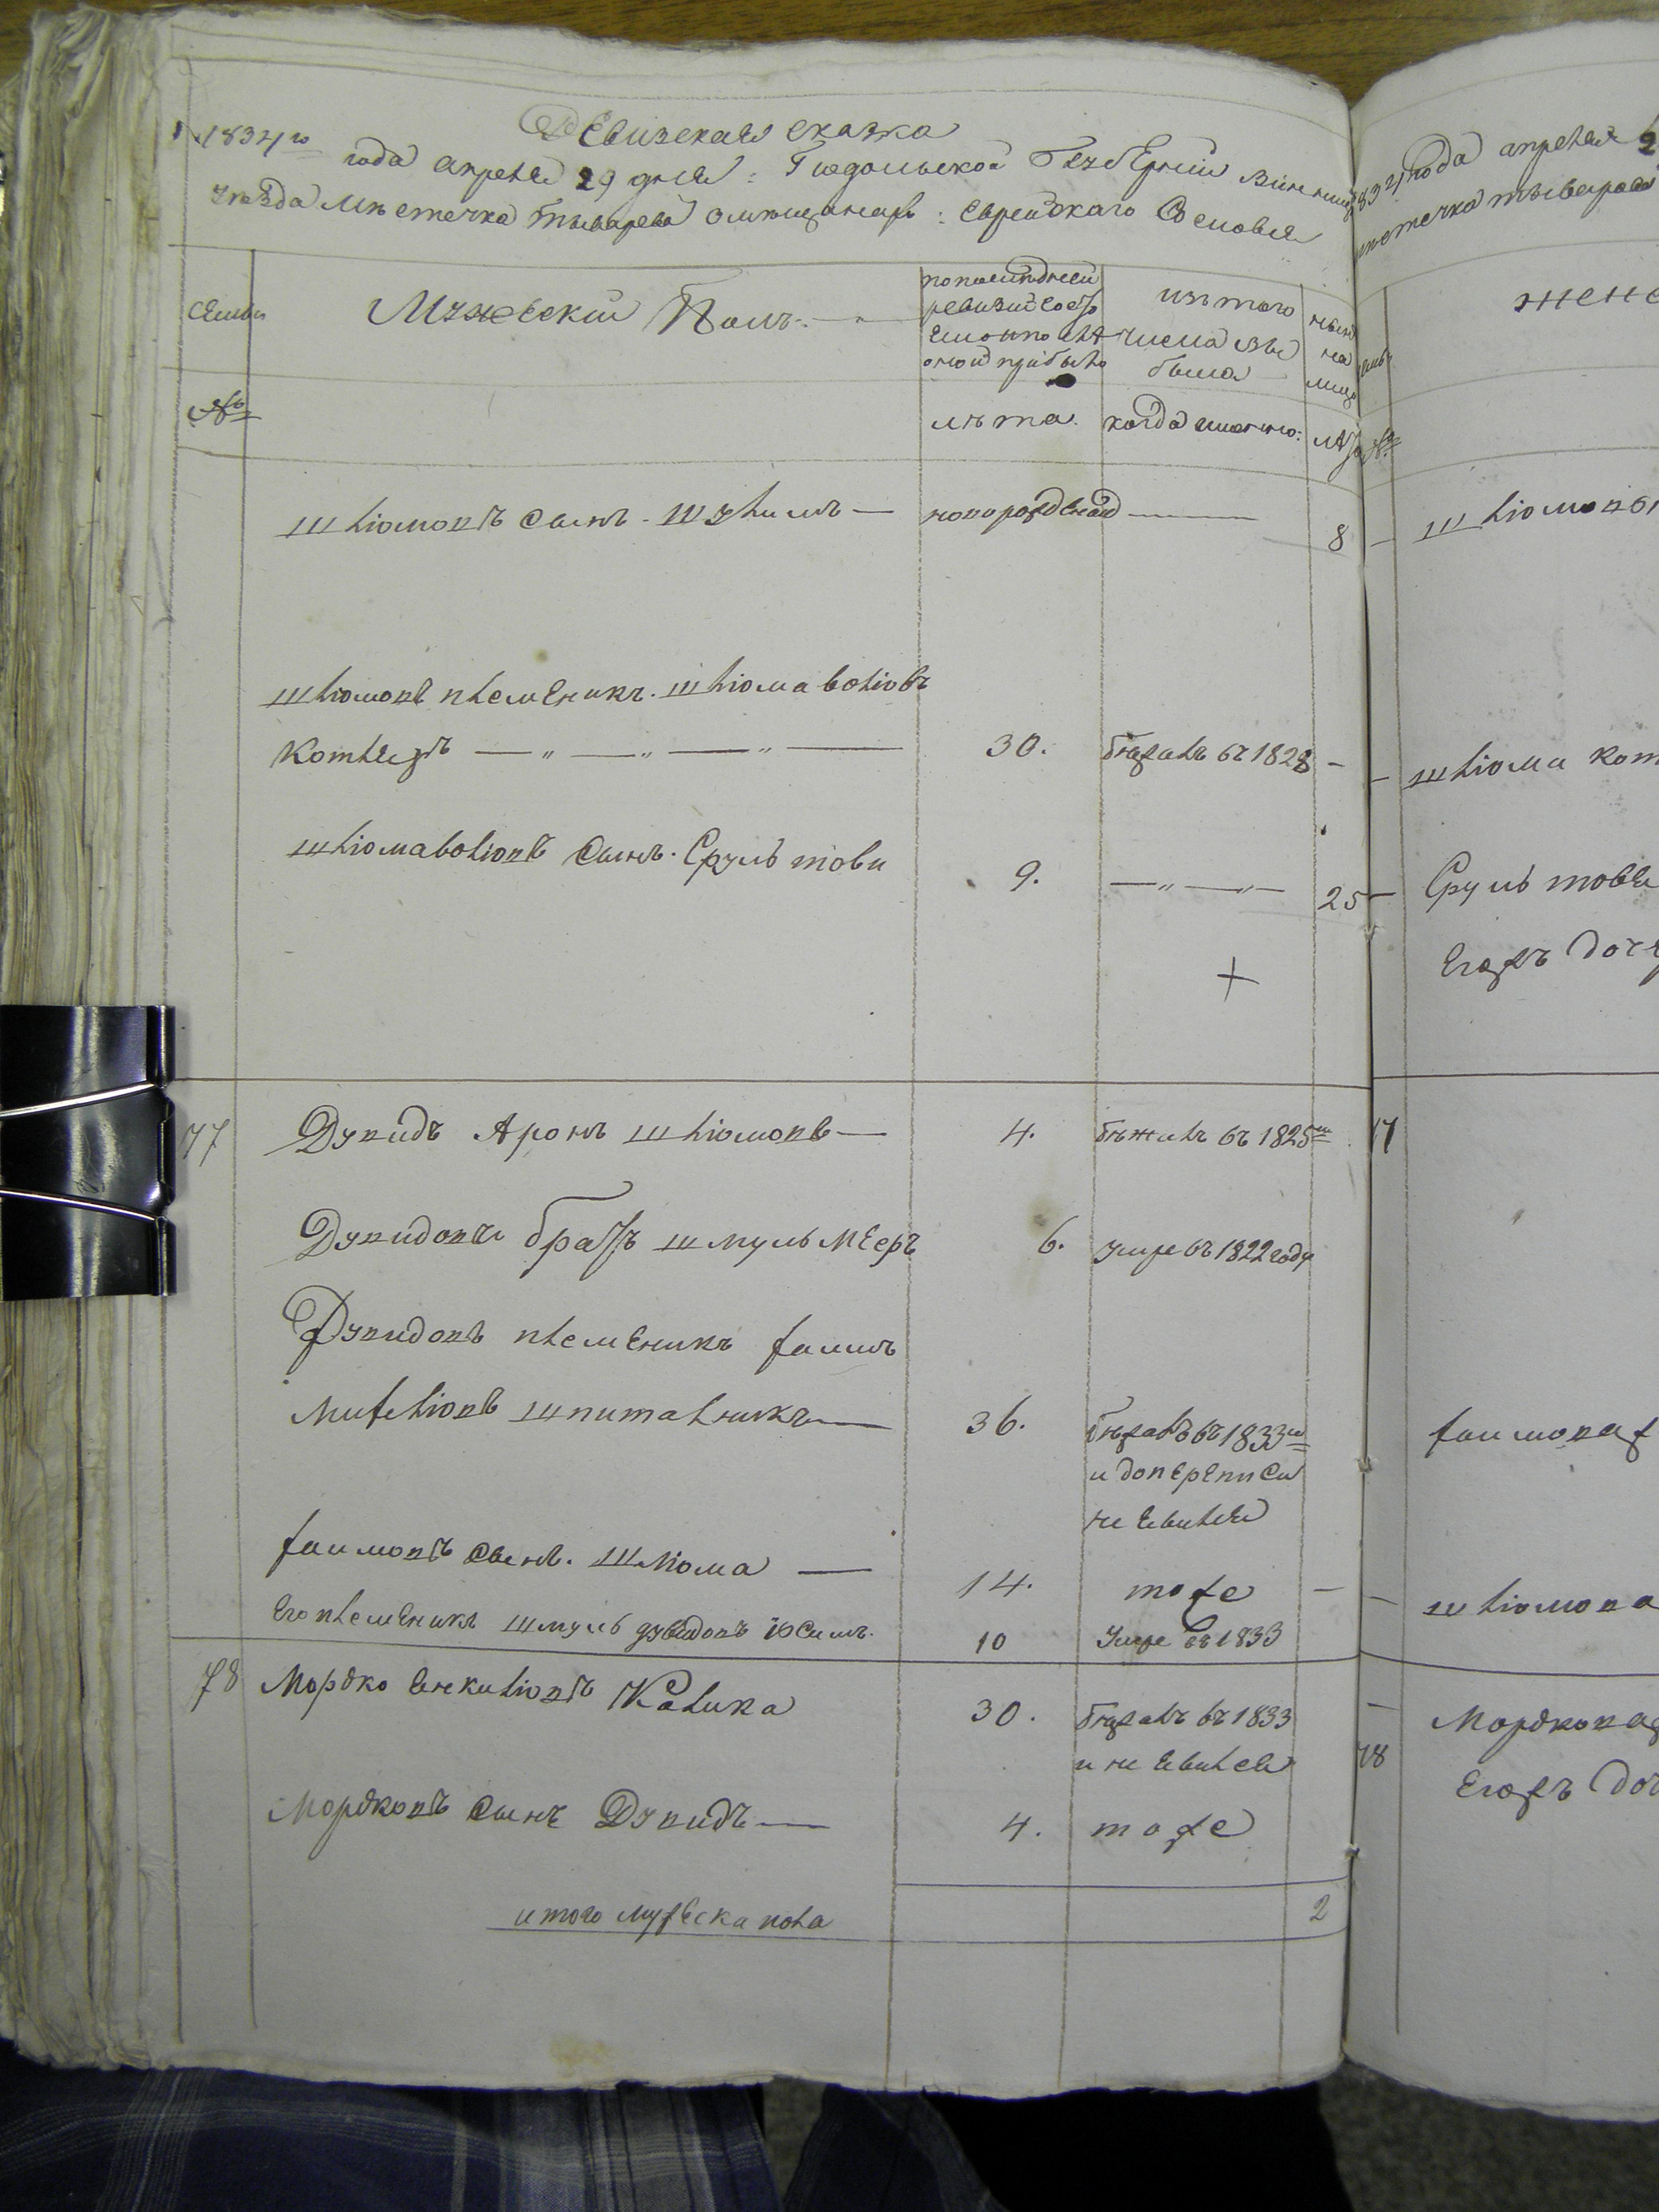 Ревизская сказка
1834го года апреля 29 дня: Подольской Губернии Винниц
уезда местечка Тыврева о мещанахъ: Еврейскаго Сословия
Семьи
Мужеский Полъ
по последней
ревизии состо
Яло и после
оной прибыло
изъ того
числа вы
было
ныне
на
лицо
№
лета
когда именно:
лета
Шлiомовъ сынъ Шулимъ — новорожденой — 8
Шлiомовъ племеникъ Шлiома Волiовъ
Котлярь — 30. бежалъ въ 1828 —
Шлiома Волiовъ сынъ Сруль Тови 9. — „ — „ — 25
+
77 Дувидъ Аронъ Шлiомовъ — 4. бежалъ въ 1825го
Дувидовъ братъ Шмуль Меерь 6. умре въ 1822 году
Дувидовъ племеникъ Хаимъ
Шпитальникъ — 36. бежалъ въ 1833м
и до переписи
не Явился
Хаимовъ сынъ Шлiома — 14. тоже —
Его племеникъ Шмуль Дувидовъ Iосимъ 10 Умре въ 1833
78 Мордко Калика 30. бежалъ въ 1833 —
и не Явился
Мордковъ сынъ Дувидъ — 4. тоже
итого мужеска пола 2
1834 года апреля 2
местечка Тыврова
жене
№
Шлiомовы
Шлiома Кот
Сруль Товья
Егожъ доч
77
Хаимова ж
Шлiомова
78
Мордкова ж
Егожъ доч